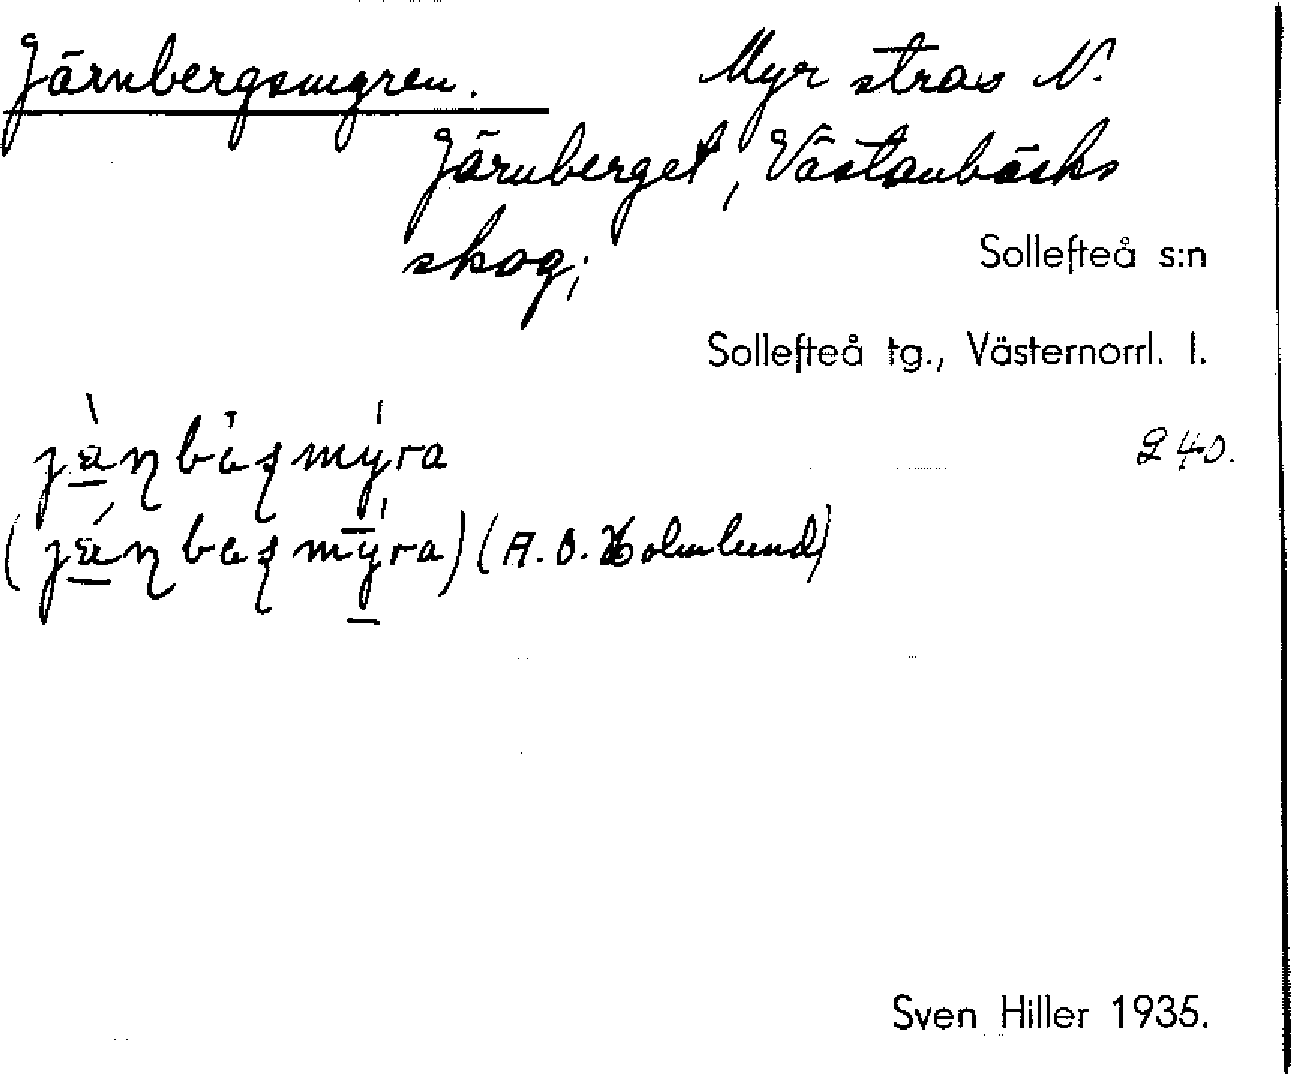 Järnbergsmyren. Myr strax N.
Järnberget, Västanbäcks
skog;
Sollefteå s:n
Sollefteå tg., Västernorrl. l.
240.
(A. O. Holmlund)
Sven Hiller 1935.